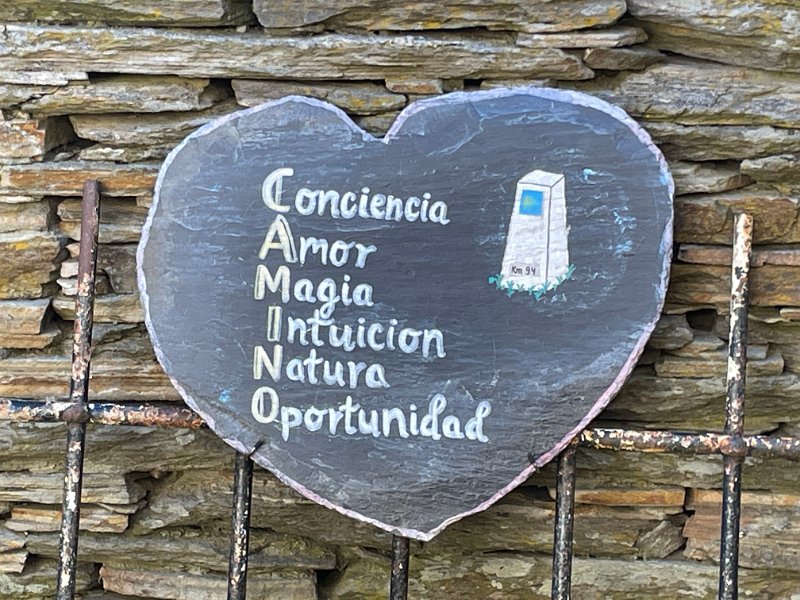 Conciencia
Amor
Magia
Intuicion
Natura
Oportunidad
Km 94